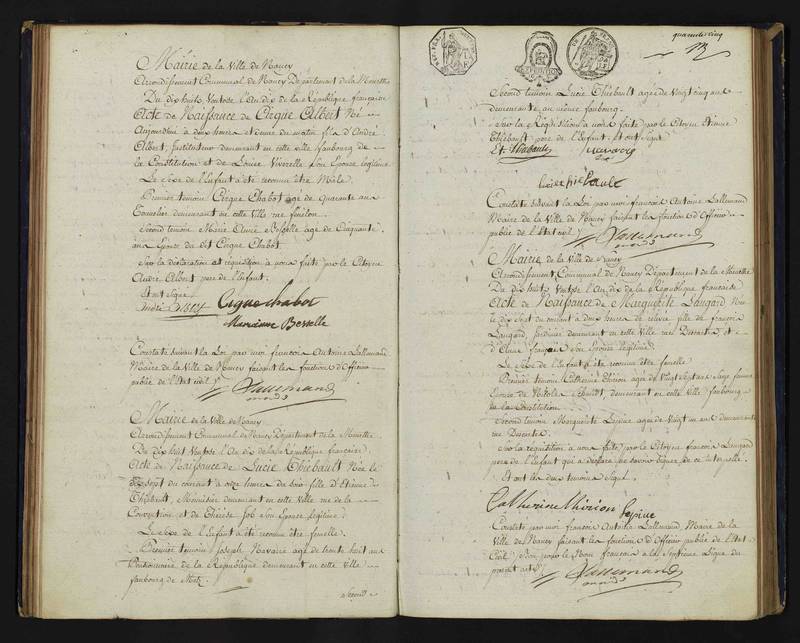 Mairie de la Ville de Nancy
Arrondissement Communal de Nancy Département de la Meurthe
Du dix huit Ventose l'An dix de la République française
Acte de Naissance de Cirque Albert Né
Aujourd'hui à deux heures et demie du matin fils d'André
Albert, Instituteur demeurant en cette ville faubourg de
la Constitution et de Louise Son Epouse legitime
Le Sexe de l'Enfant a été reconnu être Mâle
Premier temoin Cirque Chabot agé de quarante ans
Tonnelier demeurant en cette Ville rue fénélon
Second temoin Marie Besselle agée de Cinquante
ans Epouse du dit Cirque Chabot
Sur la declaration et requisition à nous faite par le Citoyen
André Albert pere de l'Enfant.
Et ont Signé
Cirque Chabot
Besselle
Constaté suivant la Loi par moi françois Antoine Lallemand
Maire de la Ville de Nancy faisant les fonctions d'Officier
public de l'Etat civil
Lallemand
Mairie de la Ville de Nancy
Arrondissement Communal de Nancy Département de la Meurthe
Du dix huit Ventose l'An dix de la République française
Acte de Naissance de Lucie Thiebault Née le
dix sept du courant à onze heures du soir fille d'Etienne
Thiebault, Menuisier demeurant en cette Ville rue de la
Convention et de Thérèse Job Son Epouse legitime
Le Sexe de l'Enfant a été reconnu être femelle
Premier temoin Joseph Navarre agé de trente huit ans
Pensionnaire de la République demeurant en cette Ville
faubourg de Metz
Second
quarante cinq
Second temoin Lucie Thiebault agée de vingt cinq ans
demeurante au même faubourg.
Sur la Réquisition à nous faite par le Citoyen Etienne
Thiebault pere de l'Enfant. Et ont Signé
Et Thiebault
lucie thiebault
Constaté suivant la Loi par moi françois Antoine Lallemand
Maire de la Ville de Nancy faisant les fonctions d'Officier
public de l'Etat civil
Lallemand
Mairie de la Ville de Nancy
Arrondissement Communal de Nancy Département de la Meurthe
Du dix huit Ventose l'An dix de la République française
Acte de Naissance de Marguerite Laugard Née
le dix Sept du courant à deux heures de relevée fille de françois
Laugard Jardinier demeurant en cette Ville rue Descartes, et
d'Anne français Son Epouse legitime
Le Sexe de l'Enfant a été reconnu être femelle
Premier temoin Catherine Thirion agée de Vingt Sept ans Sage femme
Epouse de Nicolas Schmidt, demeurant en cette Ville faubourg
de la Constitution
Second temoin Marguerite Lepine agée de Vingt un ans demeurante
rue Descartes.
Sur la réquisition à nous faite par le Citoyen françois Laugard
pere de l'Enfant qui a déclaré ne savoir Signer de ce interpellé.
Et ont les deux temoins Signé
Catherine thirion
lepine
Constaté par moi françois Antoine Lallemand Maire de la
Ville de Nancy faisant les fonctions d'Officier public de l'Etat
Civil
present acte
Lallemand